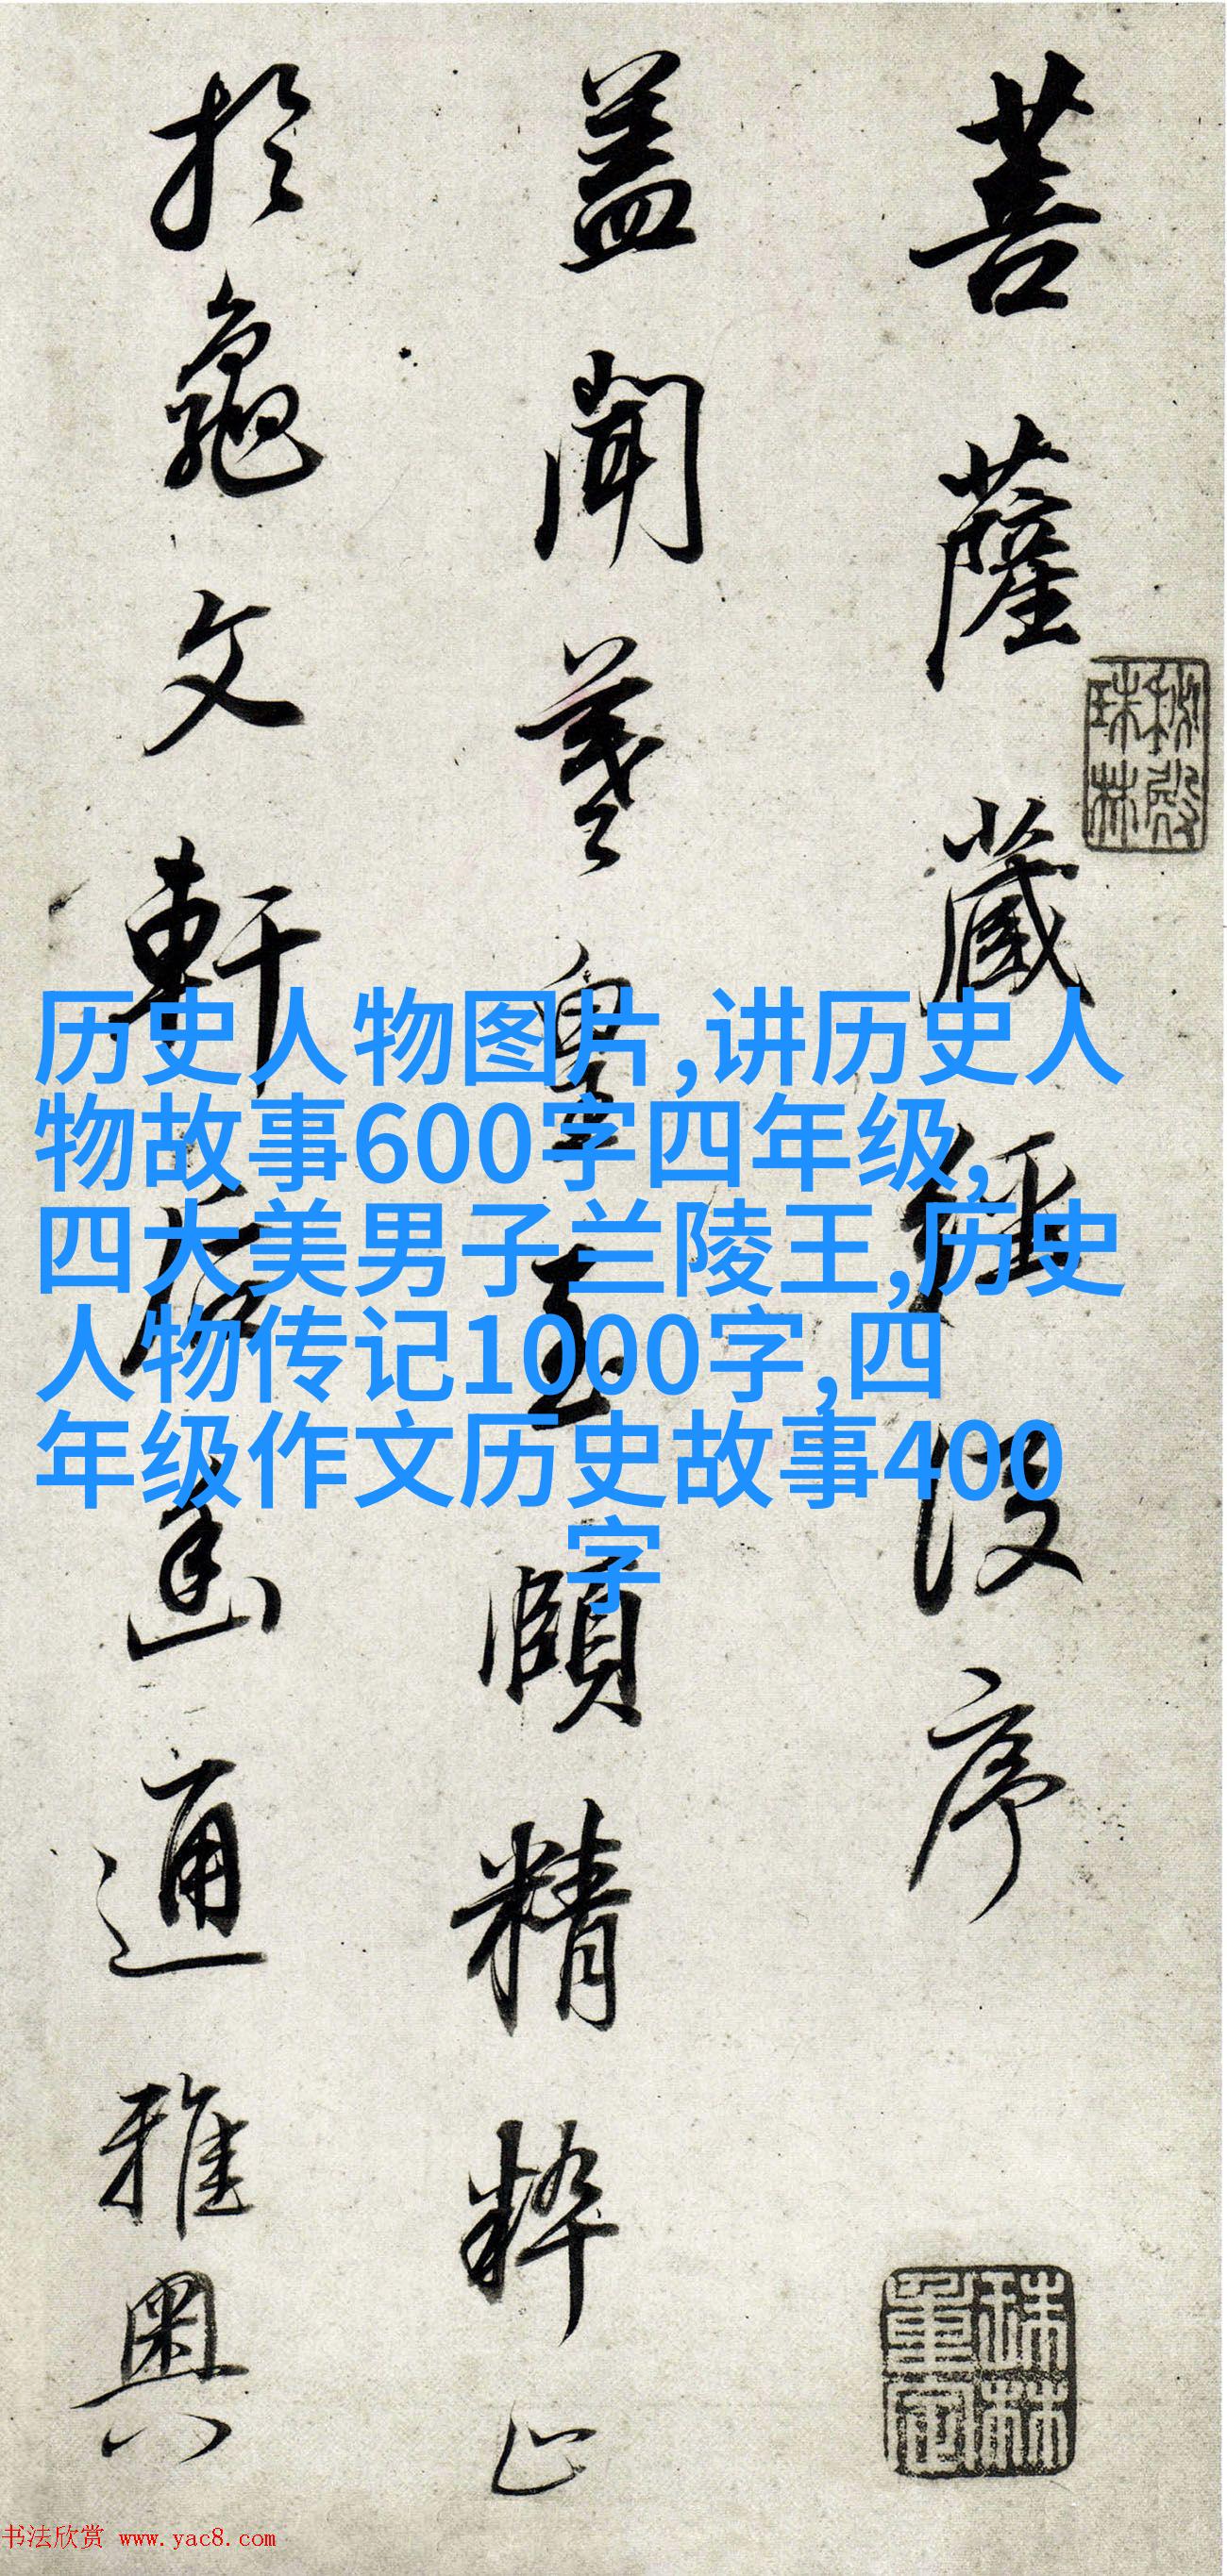 菩薩藏經後序
蓋聞羲皇至賾精粹止
於龜文軒后幽通雅奧
秘殿珠林
珠林重定
历史人物图片,讲历史人
物故事600字四年级,
四大美男子兰陵王,历史
人物传记1000字,四
年级作文历史故事400
字
书法欣赏 www.yac8.com